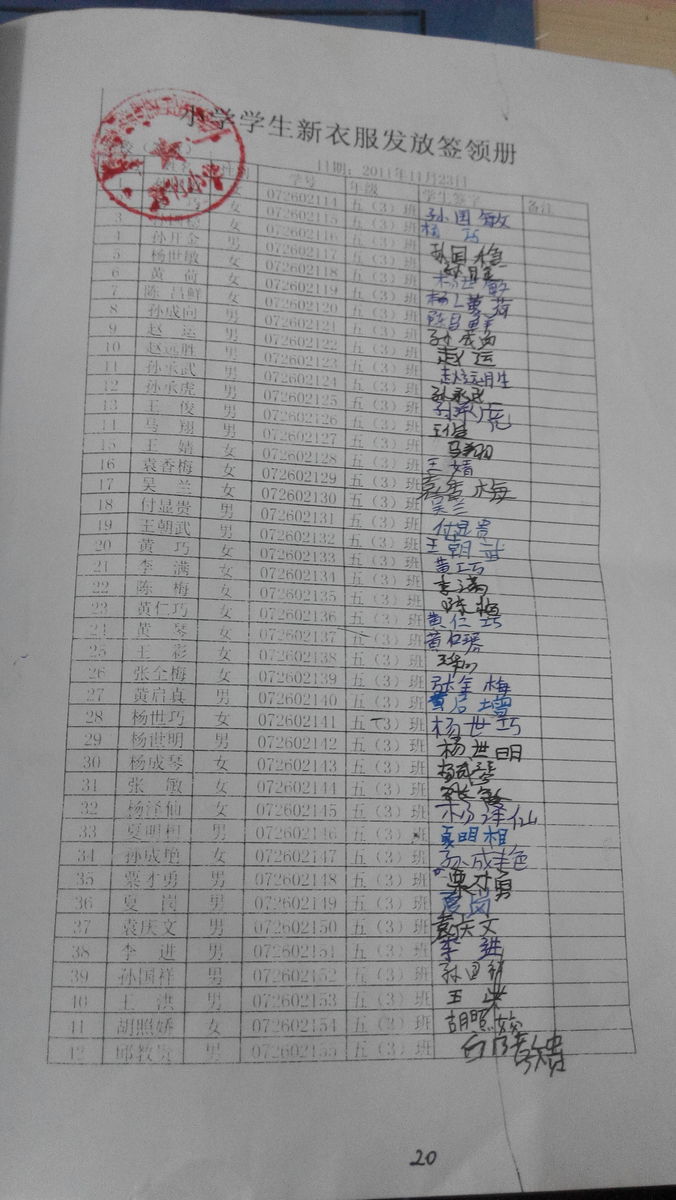 小学学生新衣服发放签领册
日期：2011年11月23日
学号 年级 学生签字 备注
1 女 072602114 五（3）班 孙国敏
巧 女 072602115 五（3）班 杨巧
3 072602116 五（3）班 孙国
4 孙开金 男 072602117 五（3）班
5 杨世敏 女 072602118 五（3）班 杨世敏
6 黄荷 女 072602119 五（3）班 黄荷
7 陈昌鲜 女 072602120 五（3）班 陈昌鲜
8 孙成向 男 072602121 五（3）班 孙成向
9 赵运 男 072602122 五（3）班 赵运
10 赵远胜 男 072602123 五（3）班 赵远胜
11 孙承武 男 072602124 五（3）班 孙承武
12 孙承虎 男 072602125 五（3）班 孙承虎
13 王俊 男 072602126 五（3）班 王俊
14 马翔 男 072602127 五（3）班 马翔
15 王婧 女 072602128 五（3）班 王婧
16 袁香梅 女 072602129 五（3）班 袁香梅
17 吴兰 女 072602130 五（3）班 吴兰
18 付显贵 男 072602131 五（3）班 付显贵
19 王朝武 男 072602132 五（3）班 王朝武
20 黄巧 女 072602133 五（3）班 黄巧
21 李满 女 072602134 五（3）班 李满
22 陈梅 女 072602135 五（3）班 陈梅
23 黄仁巧 女 072602136 五（3）班 黄仁巧
24 黄琴 女 072602137 五（3）班
25 王彩 女 072602138 五（3）班
26 张全梅 女 072602139 五（3）班 张全梅
27 黄启真 男 072602140 五（3）班
28 杨世巧 女 072602141 五（3）班 杨世巧
29 杨世明 男 072602142 五（3）班 杨世明
30 杨成琴 女 072602143 五（3）班 杨成琴
31 张敏 女 072602144 五（3）班 张敏
32 杨泽仙 女 072602145 五（3）班 杨泽仙
33 夏明相 男 072602146 五（3）班 夏明相
34 孙成艳 女 072602147 五（3）班 孙成艳
35 粟才勇 男 072602148 五（3）班 粟才勇
36 夏岗 男 072602149 五（3）班 夏岗
37 袁庆文 男 072602150 五（3）班 袁庆文
38 李进 男 072602151 五（3）班 李进
39 孙国祥 男 072602152 五（3）班 孙国
40 王洪 男 072602153 五（3）班 王洪
41 胡照娇 女 072602154 五（3）班 胡照娇
42 邱教贵 男 072602155 五（3）班
20